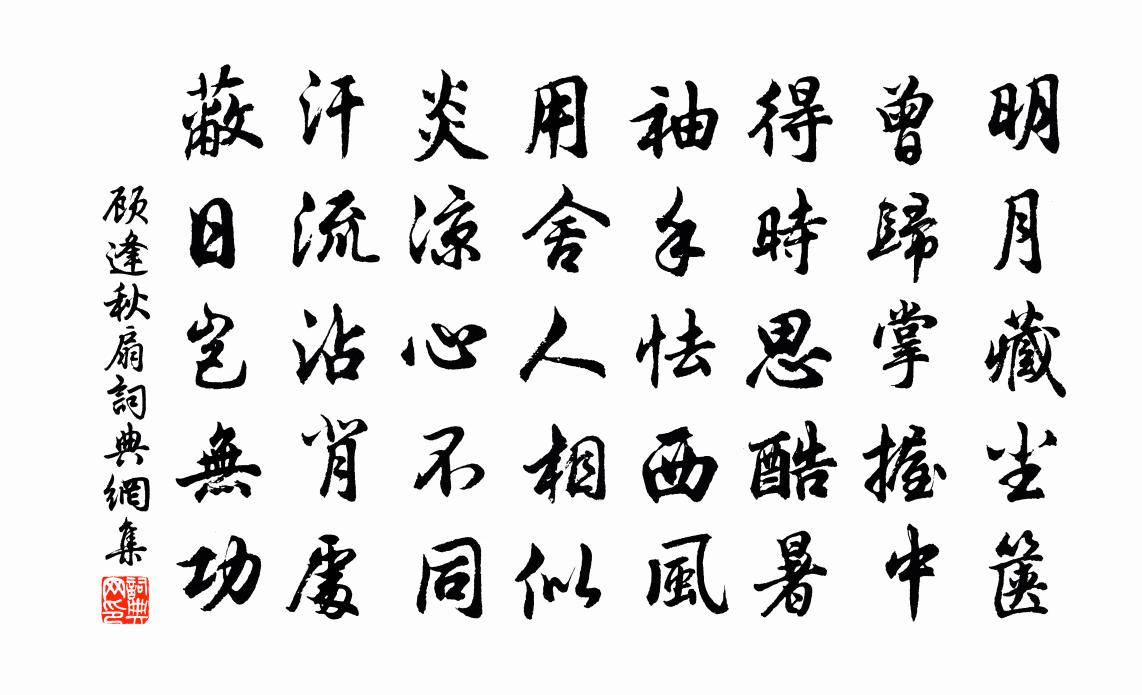 明月藏尘箧
曾歸掌握中
得時思酷暑
袖手怯西風
用舍人相似
炎凉心不同
汗流沾背處
蔽日岂無功
顾逢秋扇詞典網集
詞典网印